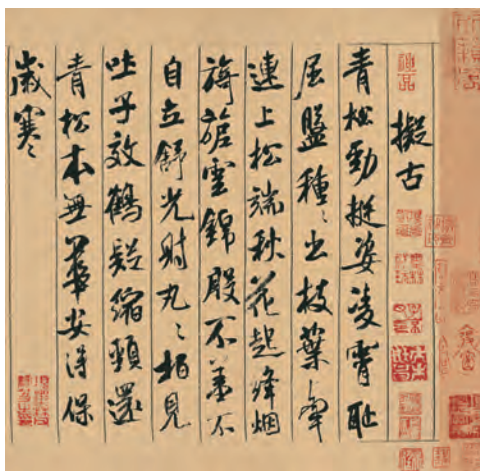 擬古
青松勁挺姿凌霄恥
屈盤種々出枝葉牽
連上松端秋花起絳烟
旖旎雲錦殷不羞不
自立舒光射丸々柏見
吐子效鶴疑縮頸還
青松本無華安得保
歲寒